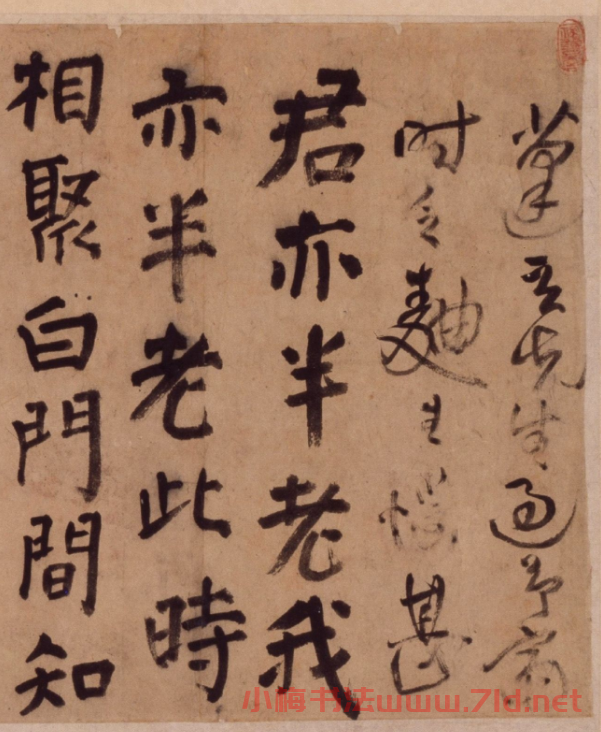 蓬吾先生過予齋
時乏麯生愧甚
君亦半老我
亦半老此時
相聚白門間知
小梅书法www.7ld.net